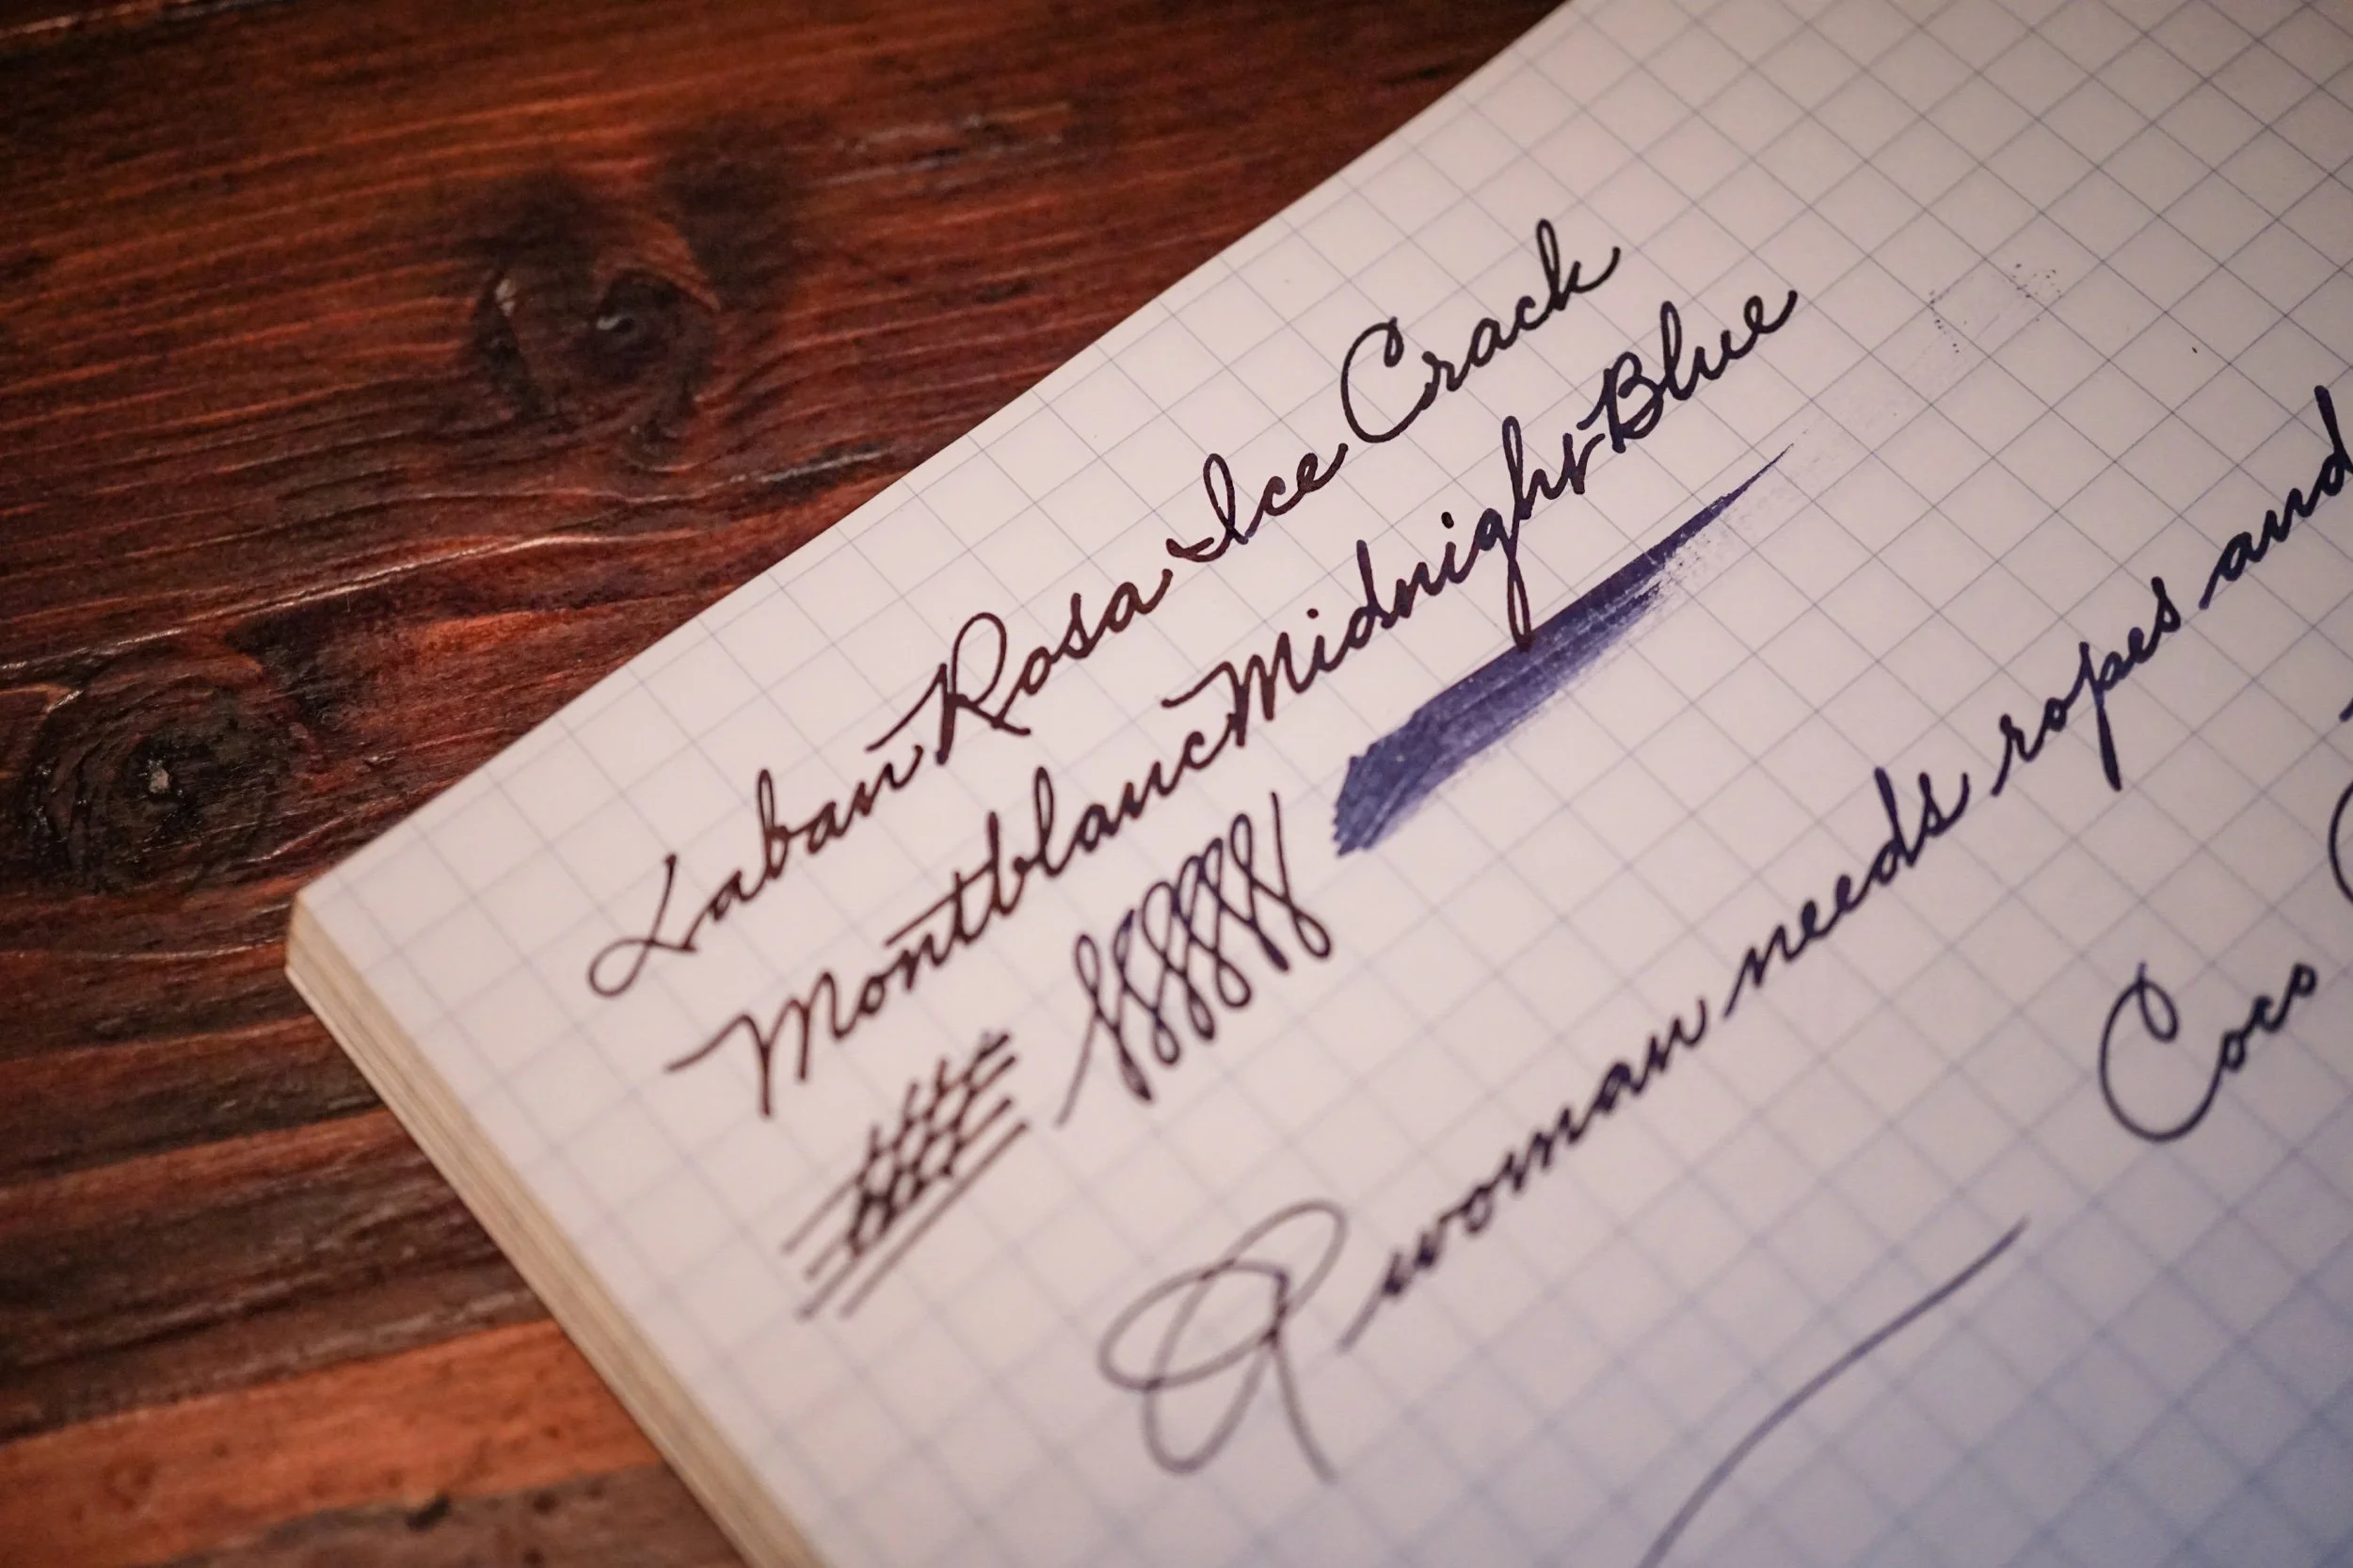 Laban Rosa Ice Crack
Montblanc Midnight Blue
A woman needs ropes and
Coco